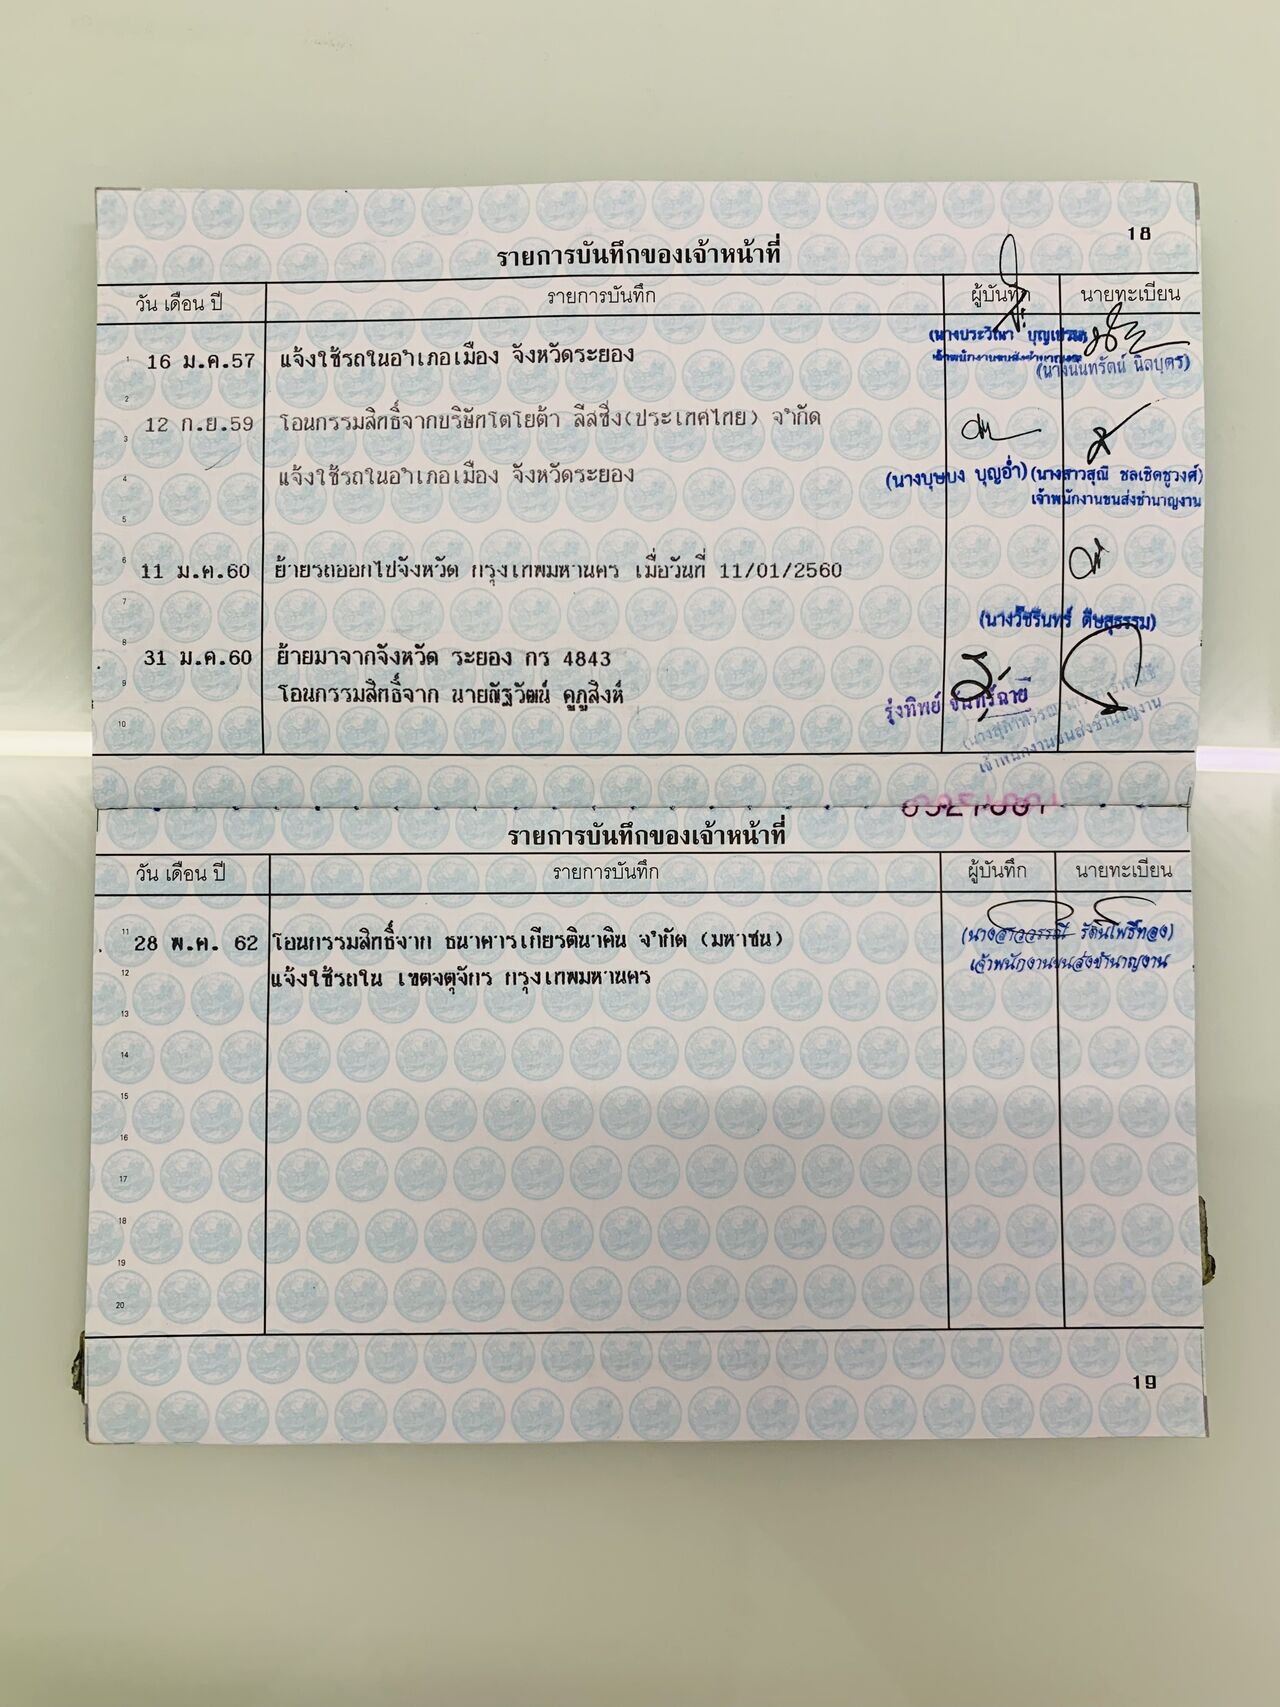 18
รายการบันทึกของเจ้าหน้าที่
วัน เดือน ปี รายการบันทึก ผู้บันทึก นายทะเบียน
1 16 ม.ค.57 แจ้งใช้รถในอำเภอเมือง จังหวัดระยอง
(นางประวีณา
(นางนันทรัตน์ นิลบุตร)
2
3 12 ก.ย.59 โอนกรรมสิทธิ์จากบริษัทโตโยต้า ลีสซิ่ง(ประเทศไทย) จำกัด
4 แจ้งใช้รถในอำเภอเมือง จังหวัดระยอง
(นางบุษบง บุญอ่ำ) (นางสาวสุณี ชลเชิดชูวงศ์)
เจ้าพนักงานขนส่งชำนาญงาน
5
6 11 ม.ค.60 ย้ายรถออกไปจังหวัด กรุงเทพมหานคร เมื่อวันที่ 11/01/2560
7
(นางวัชรินทร์ ดิษสุธรรม)
8 31 ม.ค.60 ย้ายมาจากจังหวัด ระยอง กร 4843
9 โอนกรรมสิทธิ์จาก นายณัฐวัฒน์ คูภูสิงห์
รุ่งทิพย์ จันทร์ฉาย
10
เจ้าพนักงานขนส่งชำนาญงาน
รายการบันทึกของเจ้าหน้าที่
วัน เดือน ปี รายการบันทึก ผู้บันทึก นายทะเบียน
11 28 พ.ค. 62 โอนกรรมสิทธิ์จาก ธนาคารเกียรตินาคิน จำกัด (มหาชน)
(นางสาววรรณี รัตนโพธิ์ทอง)
12 แจ้งใช้รถใน เขตจตุจักร กรุงเทพมหานคร
เจ้าพนักงานขนส่งชำนาญงาน
13
14
15
16
17
18
19
20
19